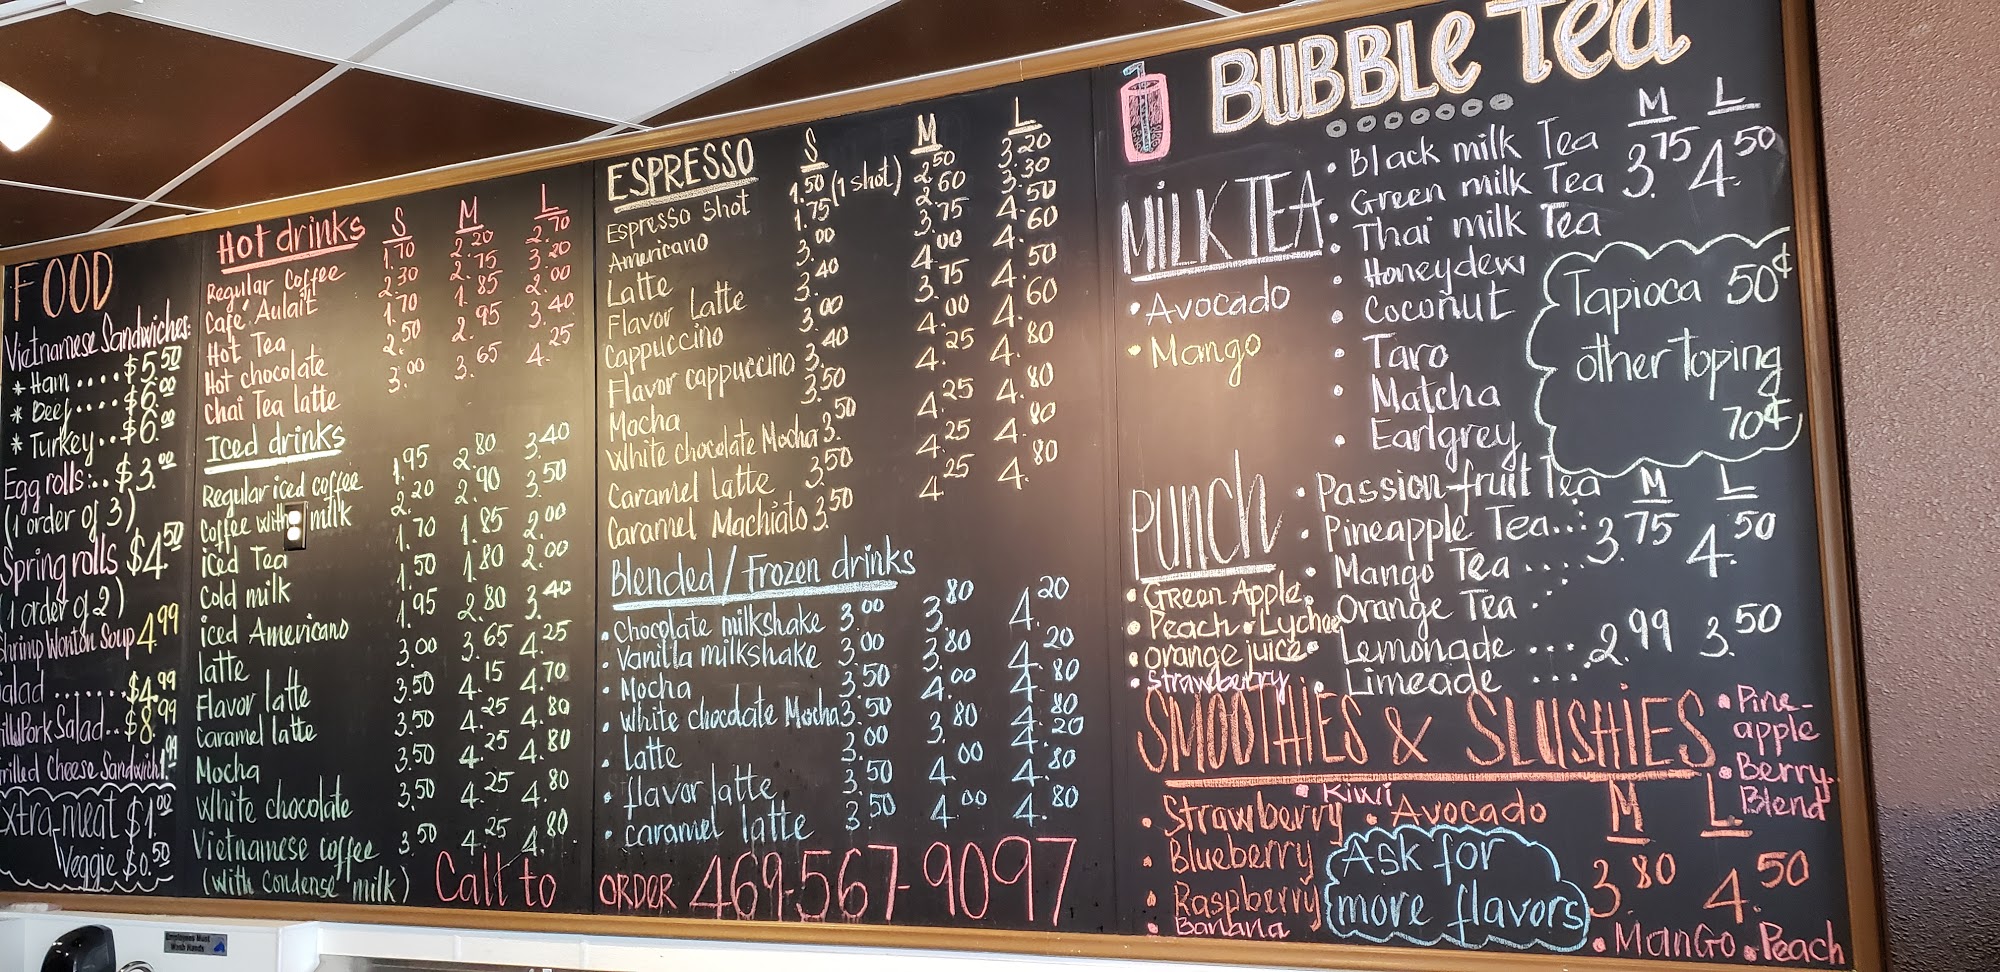 FOOD
Vietnamese Sandwiches:
* Ham .... $5.50
* Beef .... $6.00
* Turkey .. $6.00
Egg rolls:.. $3.00
(1 order of 3)
Spring rolls $4.50
(1 order of 2)
Shrimp Wonton Soup 4.99
Salad ....... $4.99
Pork Salad .. $8.99
Grilled Cheese Sandwich
Extra meat $1.00
Veggie $0.50
Hot drinks S M L
Regular Coffee 1.70 2.20 2.70
Café Aulait 2.30 2.75 3.20
Hot Tea 1.70 1.85 2.00
Hot chocolate 2.50 2.95 3.40
Chai Tea latte 3.00 3.65 4.25
Iced drinks
Regular iced coffee 1.95 2.80 3.40
Coffee with milk 2.20 2.90 3.50
iced Tea 1.70 1.85 2.00
Cold milk 1.50 1.80 2.00
iced Americano 1.95 2.80 3.40
latte 3.00 3.65 4.25
Flavor latte 3.50 4.15 4.70
Caramel latte 3.50 4.25 4.80
Mocha 3.50 4.25 4.80
White chocolate 3.50 4.25 4.80
Vietnamese coffee 3.50 4.25 4.80
(with condense milk)
Call to
ESPRESSO S M L
Espresso Shot 1.50 (1 shot) 2.50 3.20
Americano 1.75 2.60 3.30
Latte 3.00 3.75 4.50
Flavor Latte 3.40 4.00 4.60
Cappuccino 3.00 3.75 4.50
Flavor cappuccino 3.40 4.00 4.60
Mocha 3.50 4.25 4.80
White chocolate Mocha 3.50 4.25 4.80
Caramel latte 3.50 4.25 4.80
Caramel Machiato 3.50 4.25 4.80
Blended / Frozen drinks
• Chocolate milkshake 3.00 3.80 4.20
• Vanilla milkshake 3.00 3.80 4.20
• Mocha 3.50 4.00 4.80
• White chocolate Mocha 3.50 3.80 4.80
• Latte 3.00 3.80 4.20
• flavor latte 3.50 4.00 4.80
• caramel latte 3.50 4.00 4.80
ORDER 469-567-9097
BUBBLE Tea
M L
MILK TEA
• Avocado
• Mango
• Black milk Tea 3.75 4.50
• Green milk Tea
• Thai milk Tea
• Honeydew
• Coconut
• Taro
• Matcha
• Earlgrey
Tapioca 50¢
other toping
70¢
PUNCH M L
• Passion fruit Tea
• Pineapple Tea... 3.75 4.50
• Mango Tea ....
• Orange Tea .
• Lemonade .... 2.99 3.50
• Limeade ...
• Green Apple
• Peach • Lychee
• orange juice
• Strawberry
SMOOTHIES & SLUSHIES
• Pine-
apple
• Berry
Blend
• Kiwi
M L
3.80 4.50
• Strawberry • Avocado
• Blueberry
• Raspberry
• Banana
Ask for
more flavors
• Mango • Peach